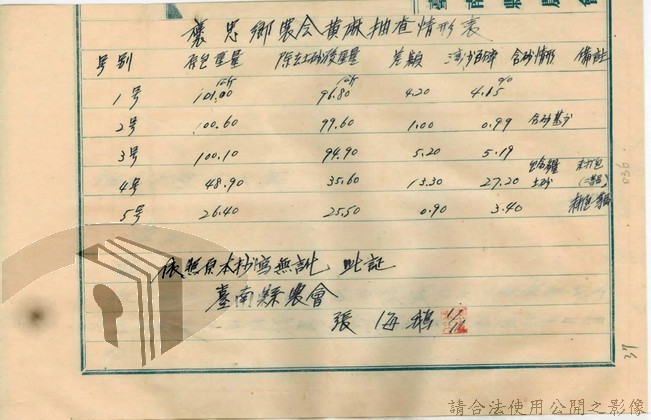 臺南縣農會
褒忠鄉農会黃麻抽查情形表
号別 原包重量 除去土砂後重量 差額 含砂情形 備註
1号 101.00 96.80 4.20 4.15
2号 100.60 99.60 1.00 0.99 含砂甚少
3号 100.10 94.90 5.20 5.19
4号 48.90 35.60 13.30 27.20 土砂
5号 26.40 25.50 0.90 3.40
依照原本抄寫無訛 此証
臺南縣農會
張海
036
37
請合法使用公開之影像